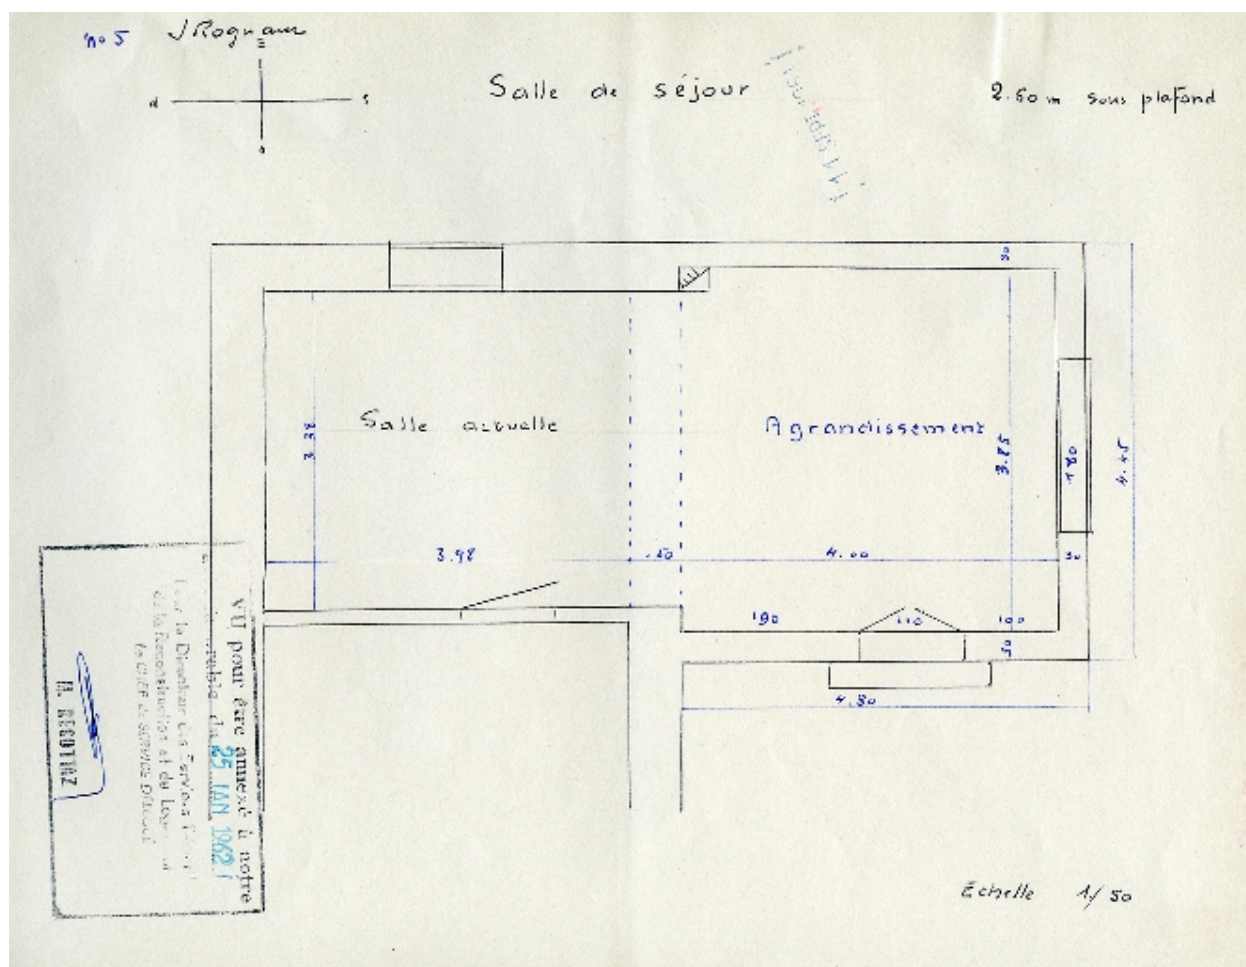 no 5
Salle de séjour
2.60 m sous plafond
30
Salle actuelle
Agrandissement
3.38
3.85
180
4.45
3.98
.50
4.00
30
190
110
100
30
4.30
VU pour être annexé à notre
du 25 JAN 1962
la Directeur des Services
de la Reconstruction et du
le CHEF de SERVICE
Echelle 1/50